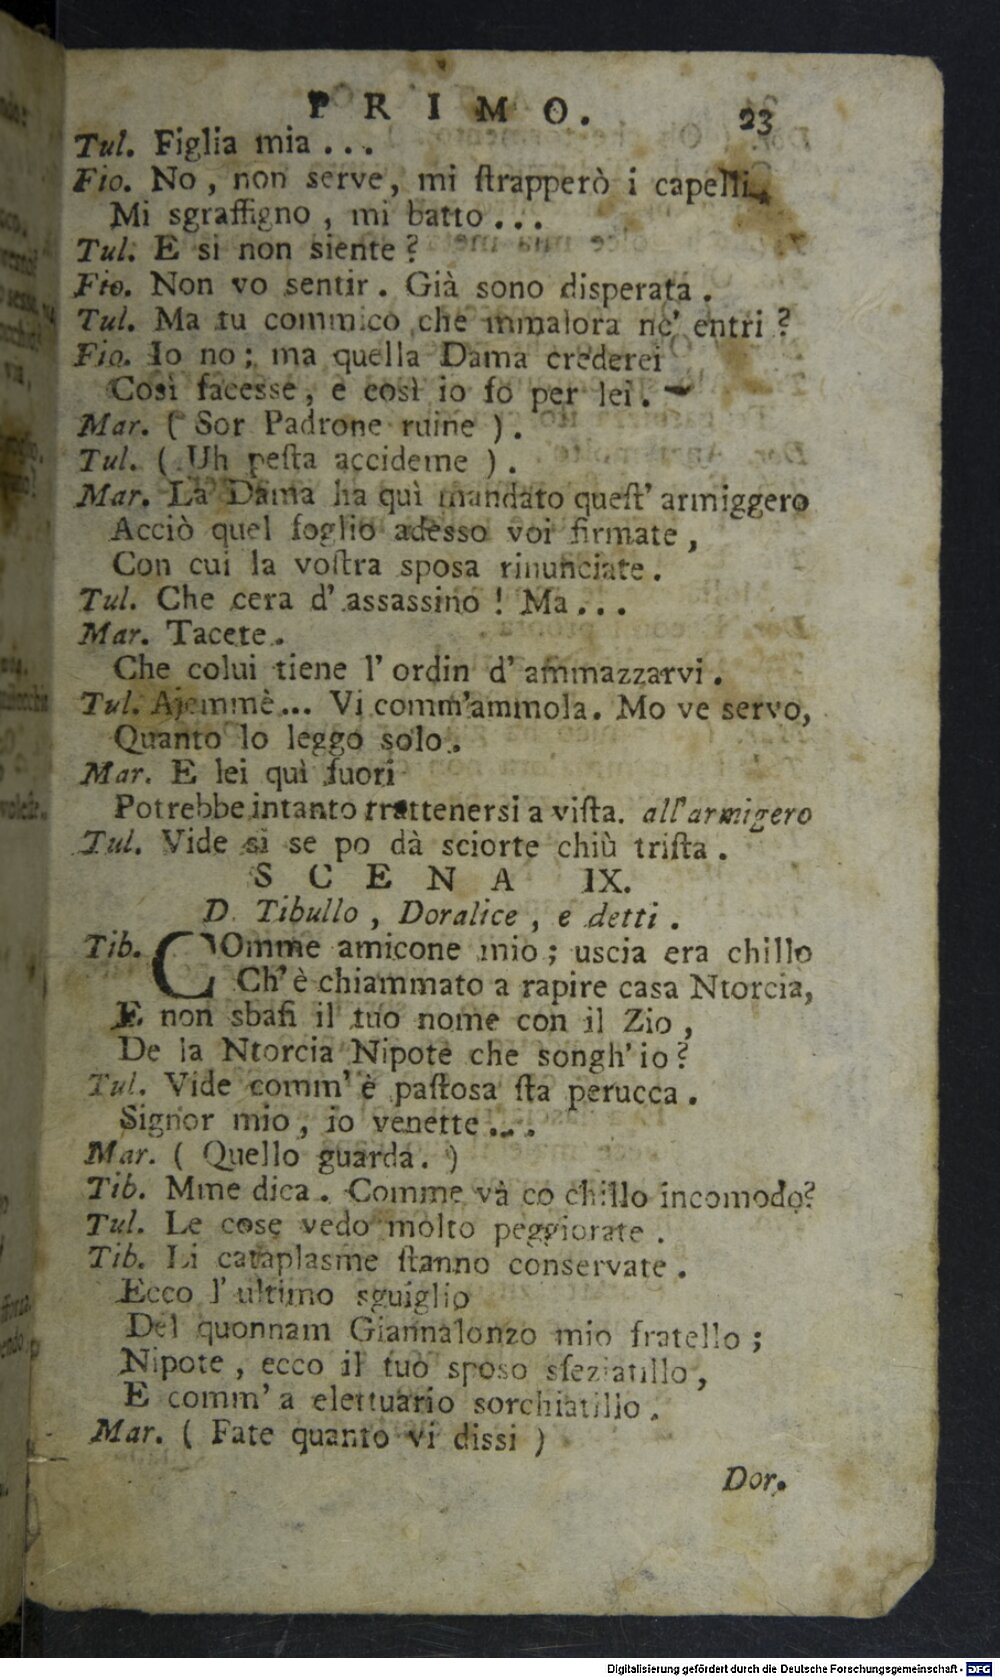 PRIMO. 23
Tul. Figlia mia...
Fio. No, non serve, mi ſtrapperò i capelli,
Mi sgraffigno, mi batto...
Tul. E si non siente?
Fio. Non vo sentir. Già sono disperata.
Tul. Ma tu commico che mmalora nc' entri?
Fio. Io no; ma quella Dama crederei
Così facesse, e così io fo per lei.
Mar. ( Sor Padrone ruine ).
Tul. ( Uh peſta accideme ).
Mar. La Dama ha quì mandato queſt' armiggero
Acciò quel foglio adesso voi firmate,
Con cui la voſtra sposa rinunciate.
Tul. Che cera d' assassino! Ma...
Mar. Tacete.
Che colui tiene l' ordin d' ammazzarvi.
Tul. Ajemmè... Vi comm'ammola. Mo ve servo,
Quanto lo leggo solo.
Mar. E lei quì fuori
Potrebbe intanto trattenersi a viſta. all'armigero
Tul. Vide si se po dà sciorte chiù triſta.
SCENA IX.
D. Tibullo, Doralice, e detti.
Tib. COmme amicone mio; uscia era chillo
Ch' è chiammato a rapire casa Ntorcia,
E non sbafi il tuo nome con il Zio,
De la Ntorcia Nipote che songh' io?
Tul. Vide comm' è paſtosa ſta perucca.
Signor mio, io venette...
Mar. ( Quello guarda. )
Tib. Mme dica. Comme và co chillo incomodo?
Tul. Le cose vedo molto peggiorate.
Tib. Li cataplasme ſtanno conservate.
Ecco l' ultimo sguiglio
Del quonnam Giannalonzo mio fratello;
Nipote, ecco il tuo sposo sfeziatillo,
E comm' a elettuario sorchiatillo.
Mar. ( Fate quanto vi dissi )
Dor.
Digitalisierung gefördert durch die Deutsche Forschungsgemeinschaft - DFG